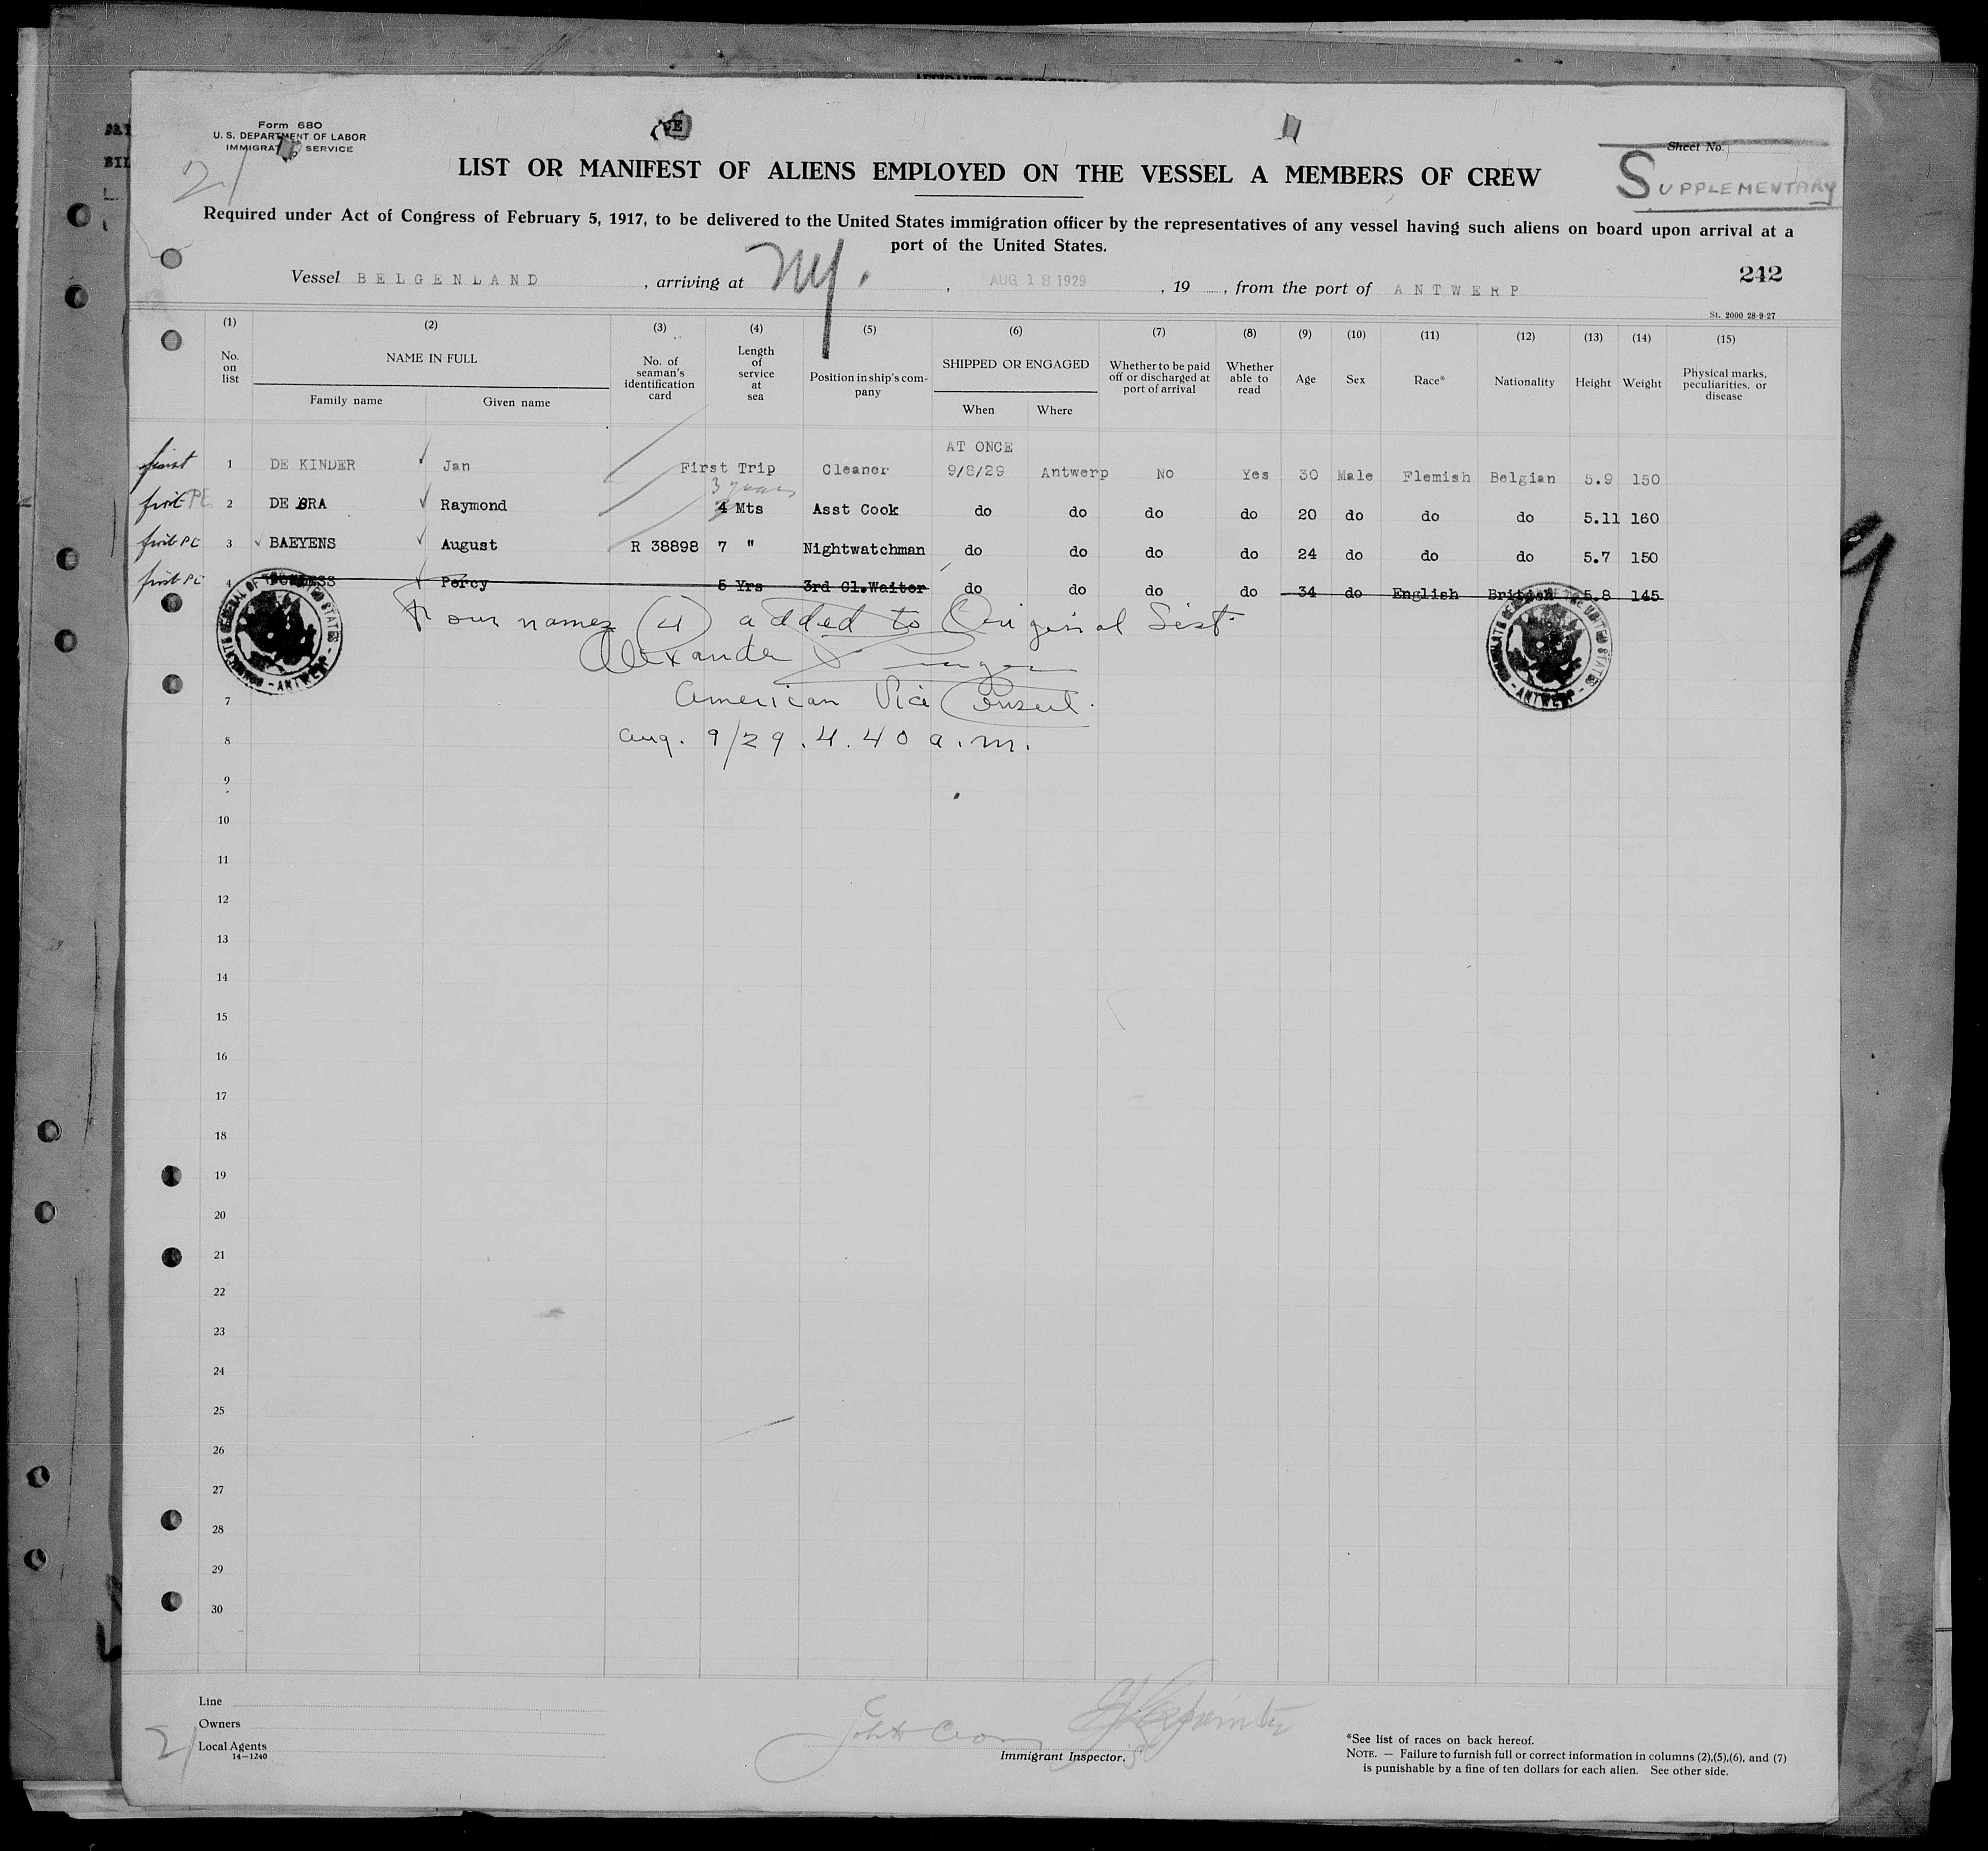 Form 680
U. S. DEPARTMENT OF LABOR
IMMIGRATION SERVICE
21
LIST OR MANIFEST OF ALIENS EMPLOYED ON THE VESSEL A MEMBERS OF CREW
Sheet No.
SUPPLEMENTARY
Required under Act of Congress of February 5, 1917, to be delivered to the United States immigration officer by the representatives of any vessel having such aliens on board upon arrival at a
port of the United States.
Vessel BELGENLAND , arriving at NY. , AUG 18 1929 , 19 , from the port of ANTWERP
242
St. 2000 28-9-27
(1) (2) (3) (4) (5) (6) (7) (8) (9) (10) (11) (12) (13) (14) (15)
No. on list NAME IN FULL Family name Given name No. of seaman's identification card Length of service at sea Position in ship's company SHIPPED OR ENGAGED When Where Whether to be paid off or discharged at port of arrival Whether able to read Age Sex Race* Nationality Height Weight Physical marks, peculiarities, or disease
AT ONCE
first 1 DE KINDER Jan First Trip Cleaner 9/8/29 Antwerp No Yes 30 Male Flemish Belgian 5.9 150
3 years
first PC 2 DE BRA Raymond 4 Mts Asst Cook do do do do 20 do do do 5.11 160
first PC 3 BAEYENS August R 38898 7 " Nightwatchman do do do do 24 do do do 5.7 150
first PC 4 Percy 5 Yrs 3rd Cl.Waiter do do do do 34 do English British 5.8 145
Four names (4) added to Original List
Alexander
American Vice Consul.
Aug. 9/29. 4.40 a.m.
7
8
9
10
11
12
13
14
15
16
17
18
19
20
21
22
23
24
25
26
27
28
29
30
Line
Owners
Local Agents
14—1240
21
Immigrant Inspector.
*See list of races on back hereof.
NOTE. — Failure to furnish full or correct information in columns (2),(5),(6), and (7)
is punishable by a fine of ten dollars for each alien. See other side.